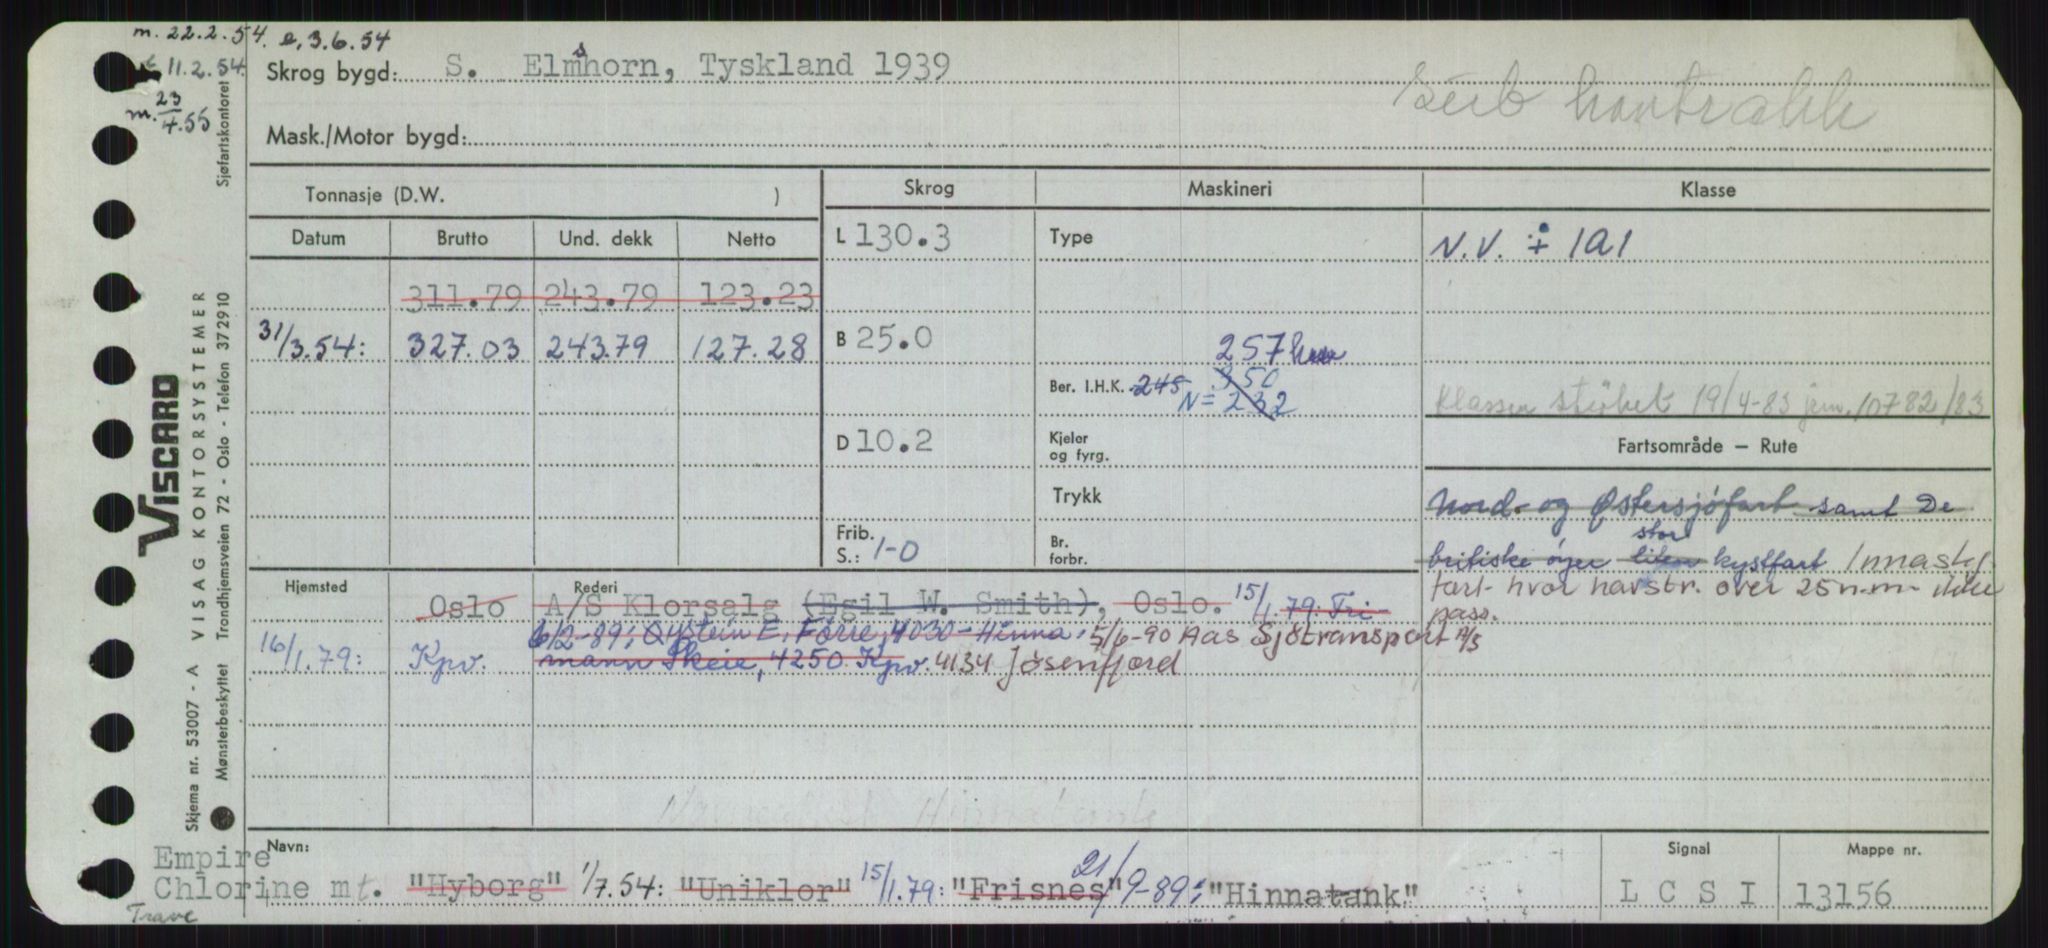 m. 22.2.54. e, 3.6.54
11.2.54.
m. 23/4.55
Skrog bygd: S. Elmshorn, Tyskland 1939
Mask./Motor bygd:
Sjøfartskontoret
VISCARD
Skjema nr. 53007 - A VISAG KONTORSYSTEMER
Mønsterbeskyttet Trondhjemsveien 72 - Oslo - Telefon 372910
Tonnasje (D.W. )
Skrog Maskineri Klasse
Datum Brutto Und. dekk Netto
L 130.3 Type N.V. ÷ 1A1
311.79 243.79 123.23
31/3.54: 327.03 243.79 127.28
B 25.0 257
Ber. I.H.K. 245 350
N = 232
Klassen 19/4-83 jm. 10782/83
D 10.2 Kjeler og fyrg.
Fartsområde — Rute
Trykk
Nord- og Østersjøfart samt De
Frib. S.: 1-0 Br. forbr.
britiske øyer liten stor kystfart Innaskj.
fart hvor havstr. over 25 n.m. ikke
pass.
Hjemsted Rederi
Oslo A/S Klorsalg (Egil W. Smith), Oslo. 15/1.79: Tri-
6/2-89: Øystein E. Førre, 4030 - Hinna. 5/6-90 Aas Sjøtransport A/S
16/1.79: Kpv. mann Skeie, 4250 Kpv. 4134 Jøsenfjord
Navn:
Signal Mappe nr.
Empire
Chlorine mt. "Hyborg" 1/7.54: "Uniklor" 15/1.79: "Frisnes" 21/9-89: "Hinnatank"
L C S I 13156
Trave